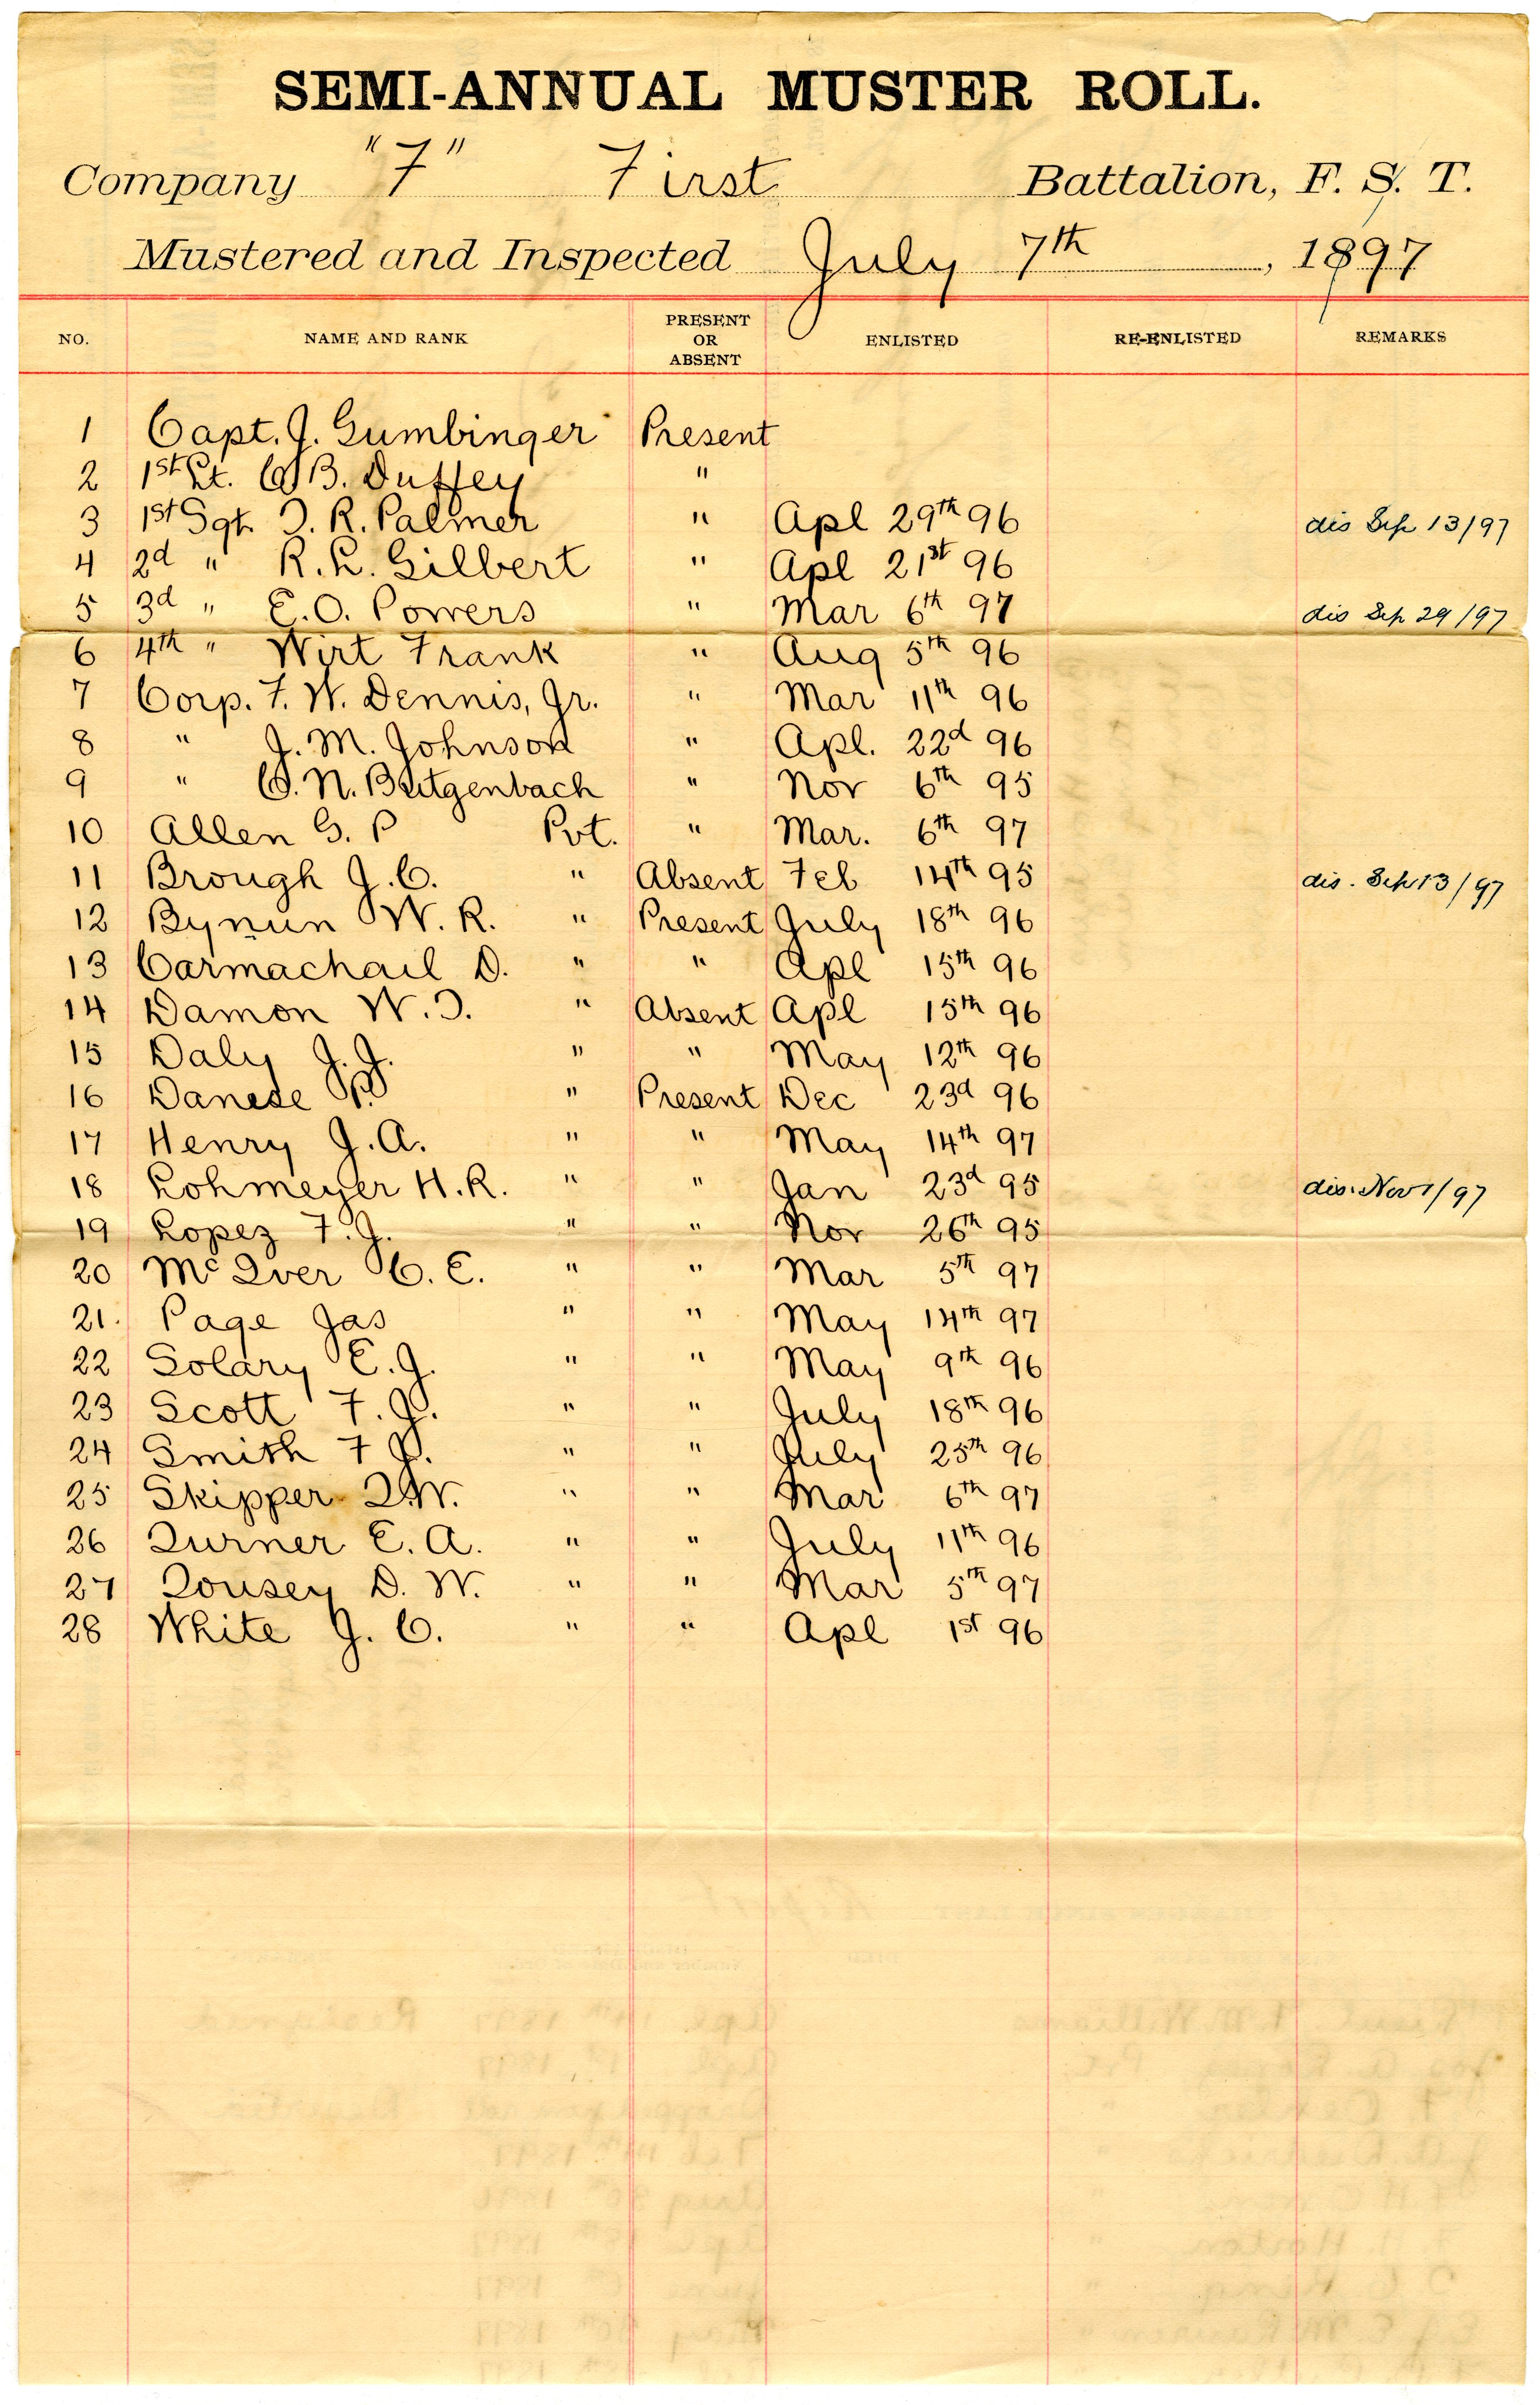 SEMI-ANNUAL MUSTER ROLL.
Company "F" First Battalion, F. S. T.
Mustered and Inspected July 7th, 1897
NO. NAME AND RANK PRESENT OR ABSENT ENLISTED RE-ENLISTED REMARKS
1 Capt. J. Gumbinger Present
2 1st Lt. W B. Duffey "
3 1st Sgt. T. R. Palmer " Apl 29th 96 dis Sep 13/97
4 2d " R. L. Gilbert " Apl 21st 96
5 3d " E. O. Powers " Mar 6th 97 dis Sep 29/97
6 4th " Wirt Frank " Aug 5th 96
7 Corp. F. W. Dennis, Jr. " Mar 11th 96
8 " J. M. Johnson " Apl. 22d 96
9 " C. N. Butgenbach " Nov 6th 95
10 Allen G. P Pvt. " Mar. 6th 97
11 Brough J. C. " Absent Feb 14th 95 dis. Sep 13/97
12 Bynun W. R. " Present July 18th 96
13 Carmachail D. " " Apl 15th 96
14 Damon W. T. " Absent Apl 15th 96
15 Daly J. J. " " May 12th 96
16 Danese P. " Present Dec 23d 96
17 Henry J. A. " " May 14th 97
18 Lohmeyer H. R. " " Jan 23d 95 dis. Nov 1/97
19 Lopez F. J. " " Nov 26th 95
20 McIver C. E. " " Mar 5th 97
21. Page Jas " " May 14th 97
22 Solary E. J. " " May 9th 96
23 Scott F. J. " " July 18th 96
24 Smith F J. " " July 25th 96
25 Skipper I. W. " " Mar 6th 97
26 Turner E. A. " " July 11th 96
27 Tousey D. W. " " Mar 5th 97
28 White J. C. " " Apl 1st 96